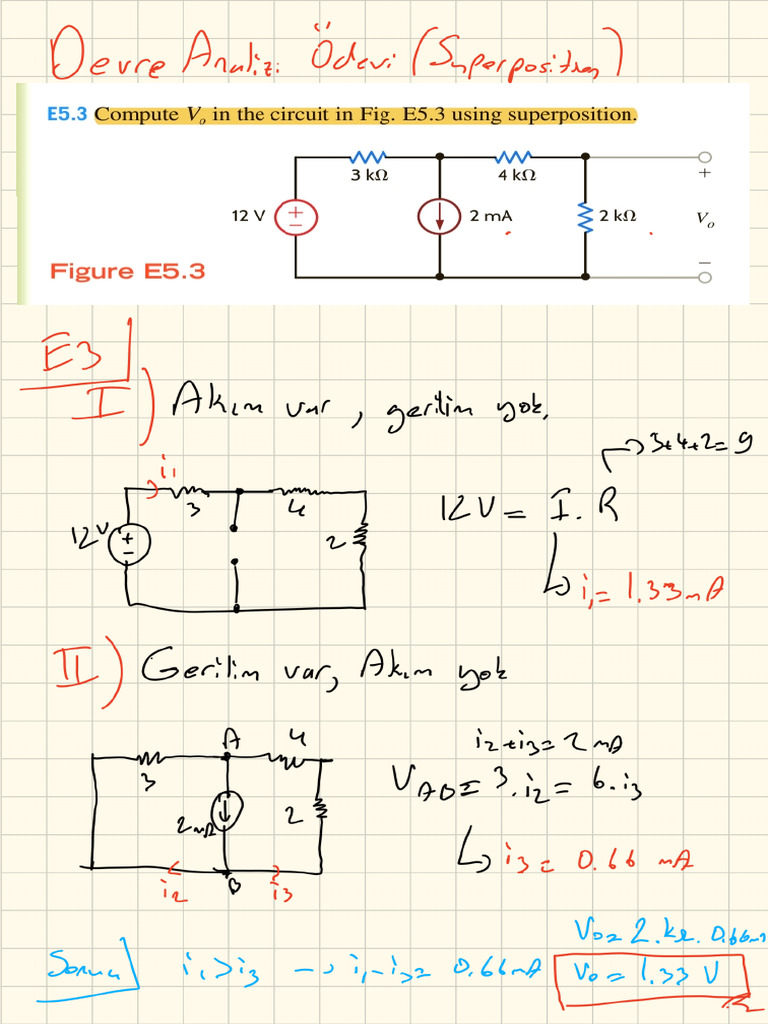 Devre Analizi Ödevi (Superposition)
E5.3 Compute Vo in the circuit in Fig. E5.3 using superposition.
3 kΩ
4 kΩ
+
12 V
+
−
2 mA
2 kΩ
Vo
−
Figure E5.3
E3
I) Akım var, gerilim yok,
3+4+2=9
i1
3
4
12V
+
−
2
12V = I.R
i1 = 1.33mA
II) Gerilim var, Akım yok
A
4
3
2mA
2
i2
B
i3
i2+i3=2mA
VAB = 3.i2 = 6.i3
i3 = 0.66 mA
Vo = 2.kΩ. 0.66m
Sonuç i1>i3 → i1-i3= 0.66mA
Vo = 1.33 V